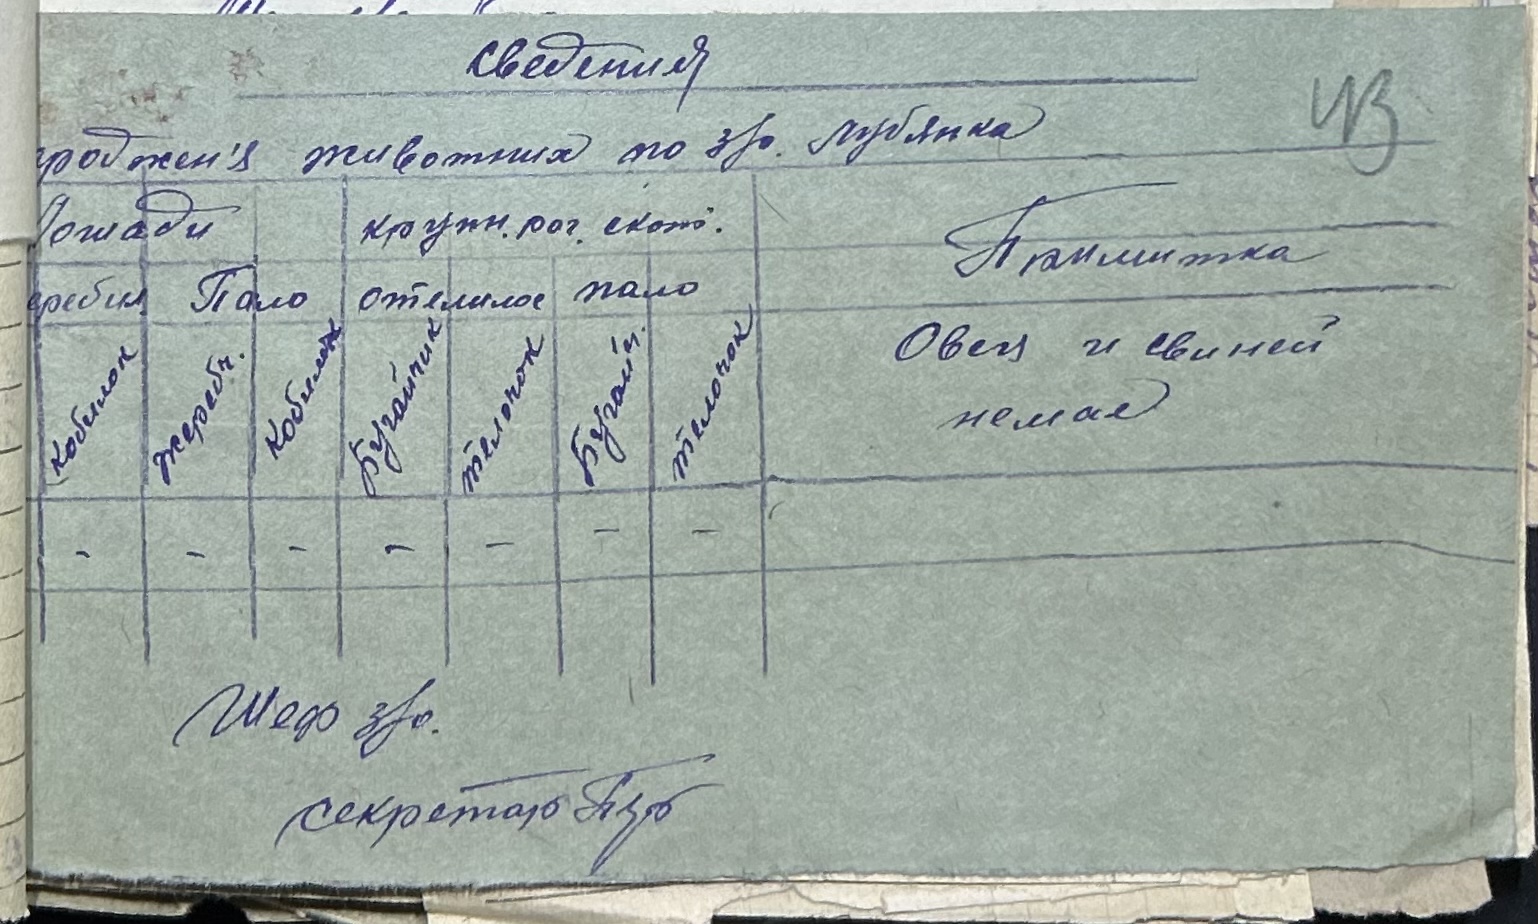 Сведения
роджен'я животних по з/о. Лубянка
Лошади крупн. рог. скот. Примитка
еребил. Пало отелилос пало
кобилок жеребч. кобилок Бугайчик телочок Бугайч. телочок
Овец и свиней
немає
- - - - - - -
Шеф з/о.
секретарь